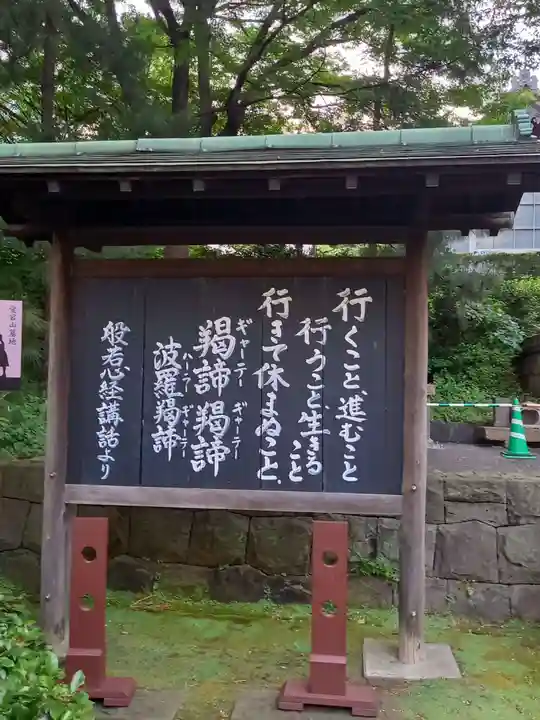 行くこと、進むこと
行うこと、生きること
行きて休まぬこと、
羯諦羯諦
ギャーテーギャーテー
波羅羯諦
ハーラーギャーテー
般若心経講話より
愛宕山墓地